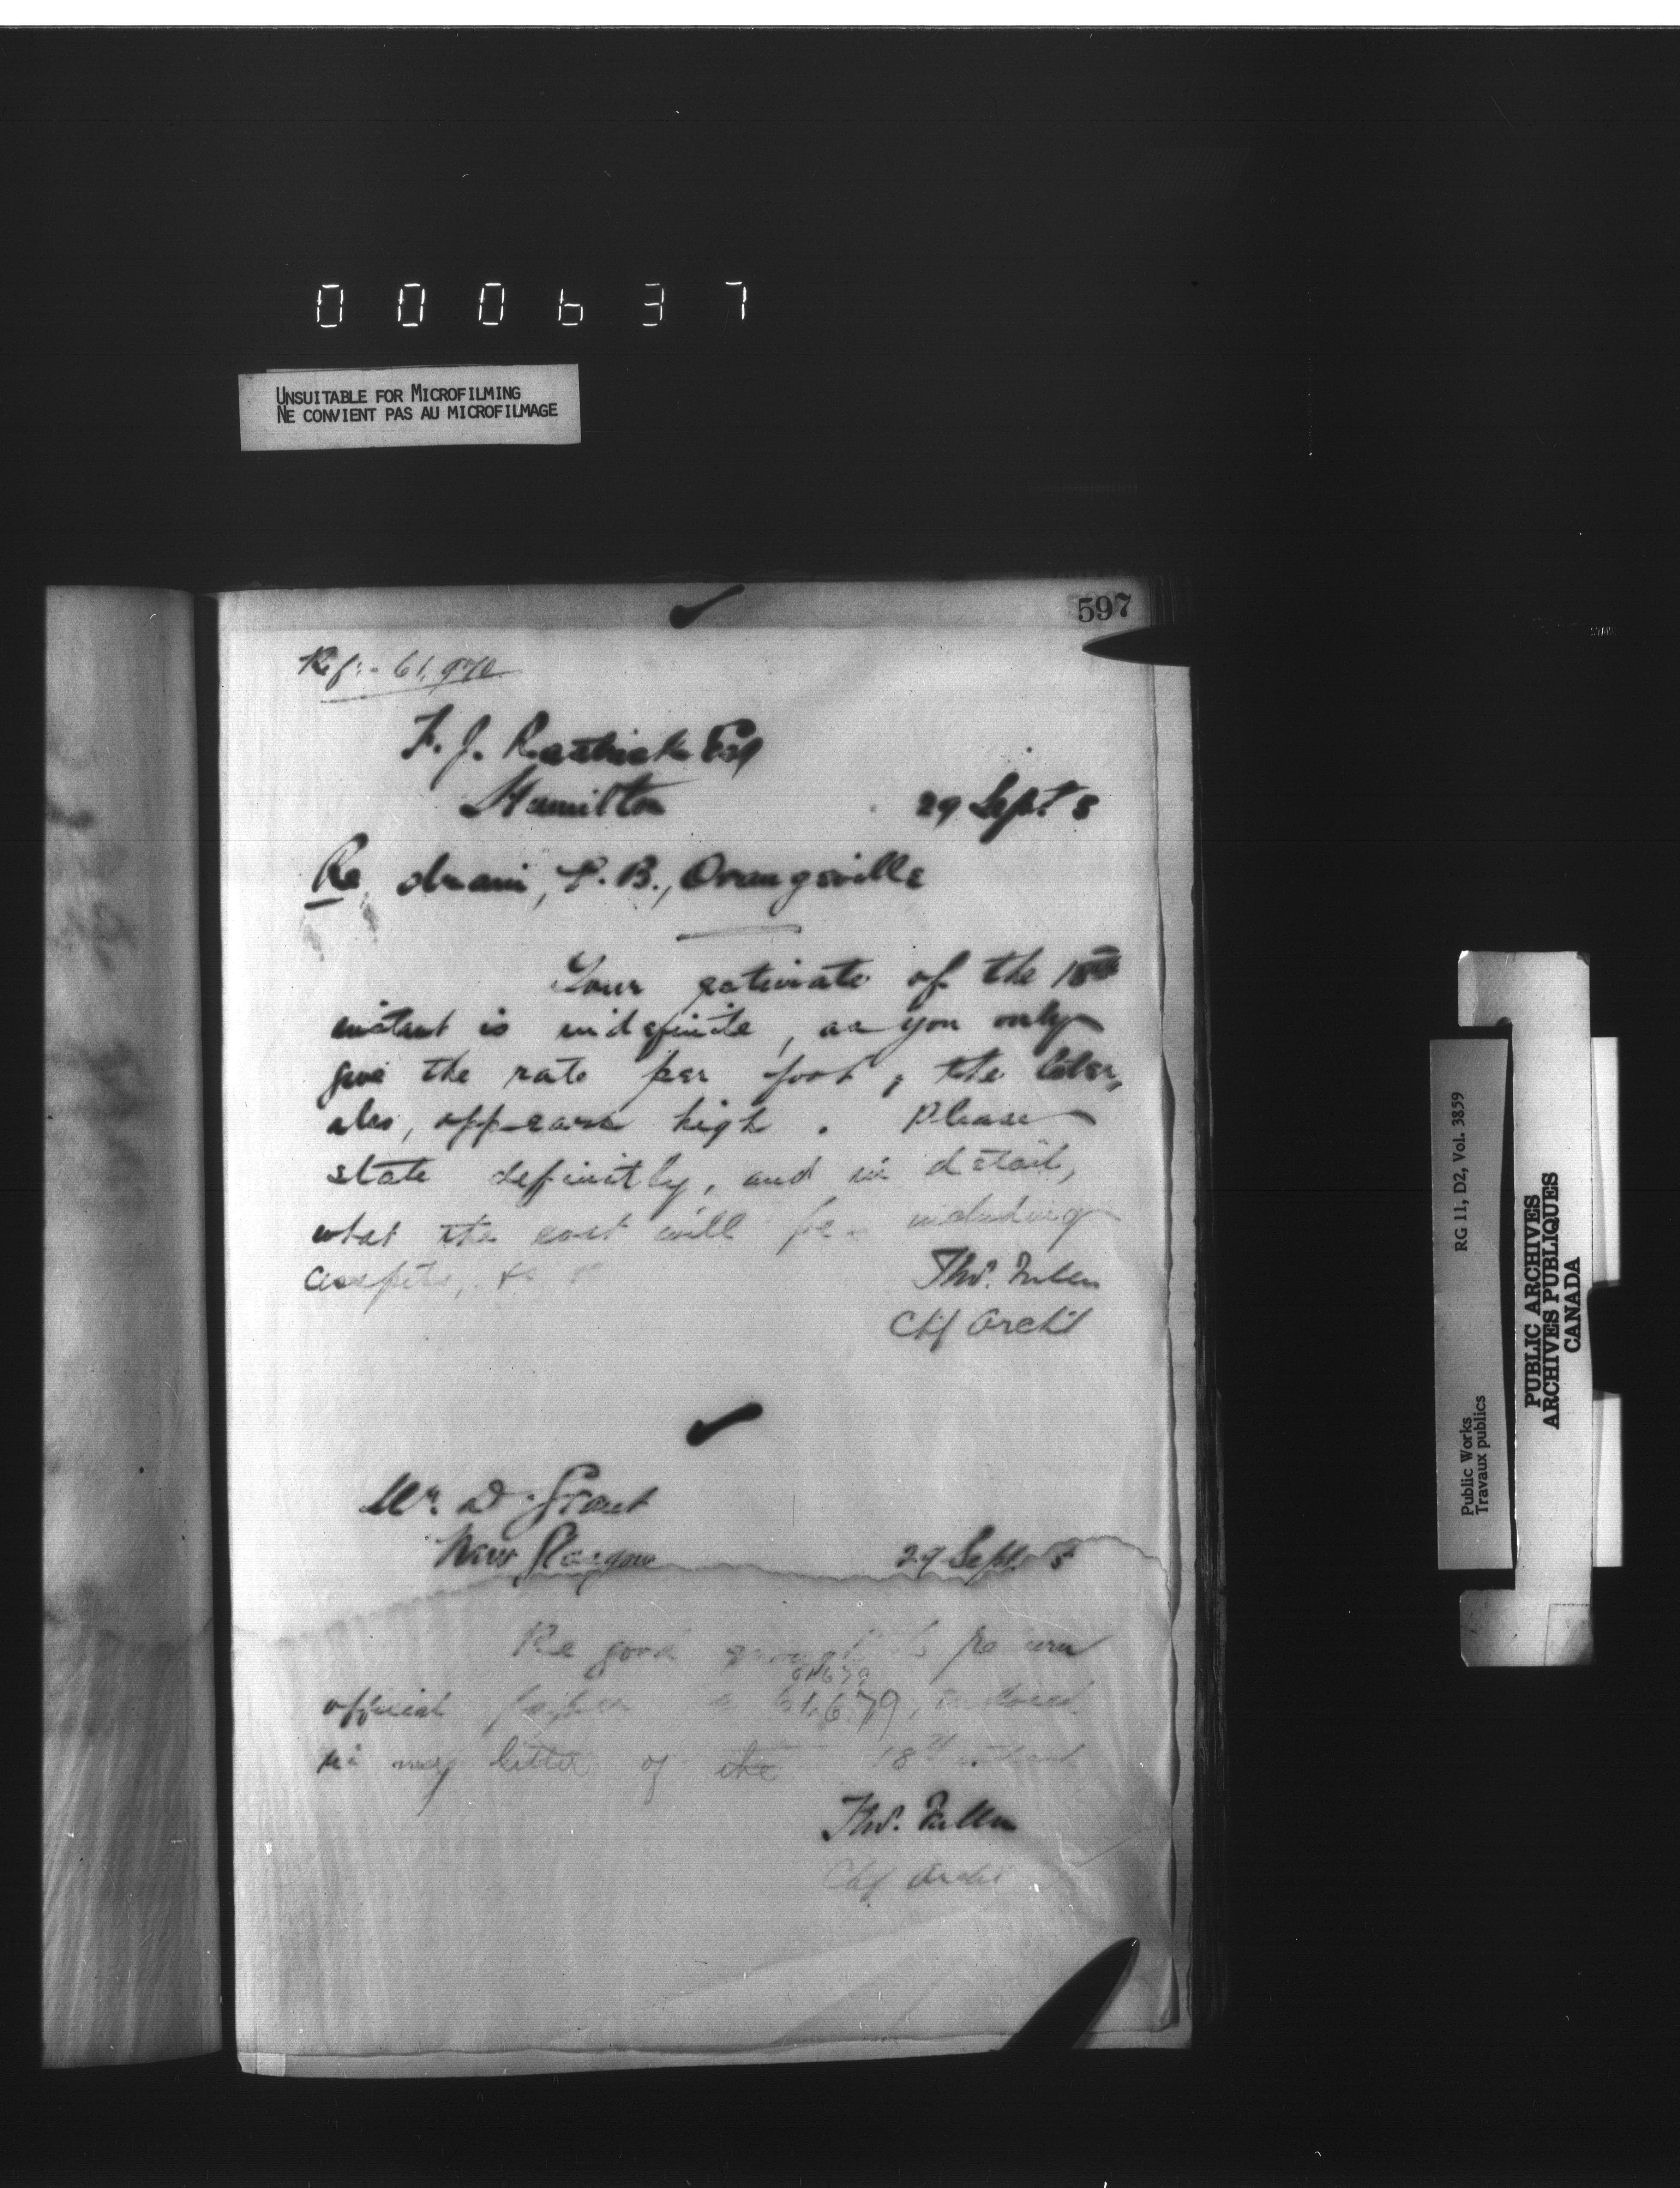 000637
UNSUITABLE FOR MICROFILMING
NE CONVIENT PAS AU MICROFILMAGE
597
Ref:- 61,970
F. J. Rastrick Esq
Hamilton 29 Sept. 8
Re drain, P. B., Orangeville
Your estimate of the 18th
instant is indefinite, as you only
give the rate per foot; the latter,
also, appears high. Please
state definitly, and in detail,
what the cost will be including
Thos. Fuller
Chf Archt
Mr. D. Grant
New Glasgow 29 Sept.
Be good enough to return
61679
official paper 61,679,
in my letter of the 18th instant
Thos. Fuller
Chf Archt
RG 11, D2, Vol. 3859
Public Works
Travaux publics
PUBLIC ARCHIVES
ARCHIVES PUBLIQUES
CANADA